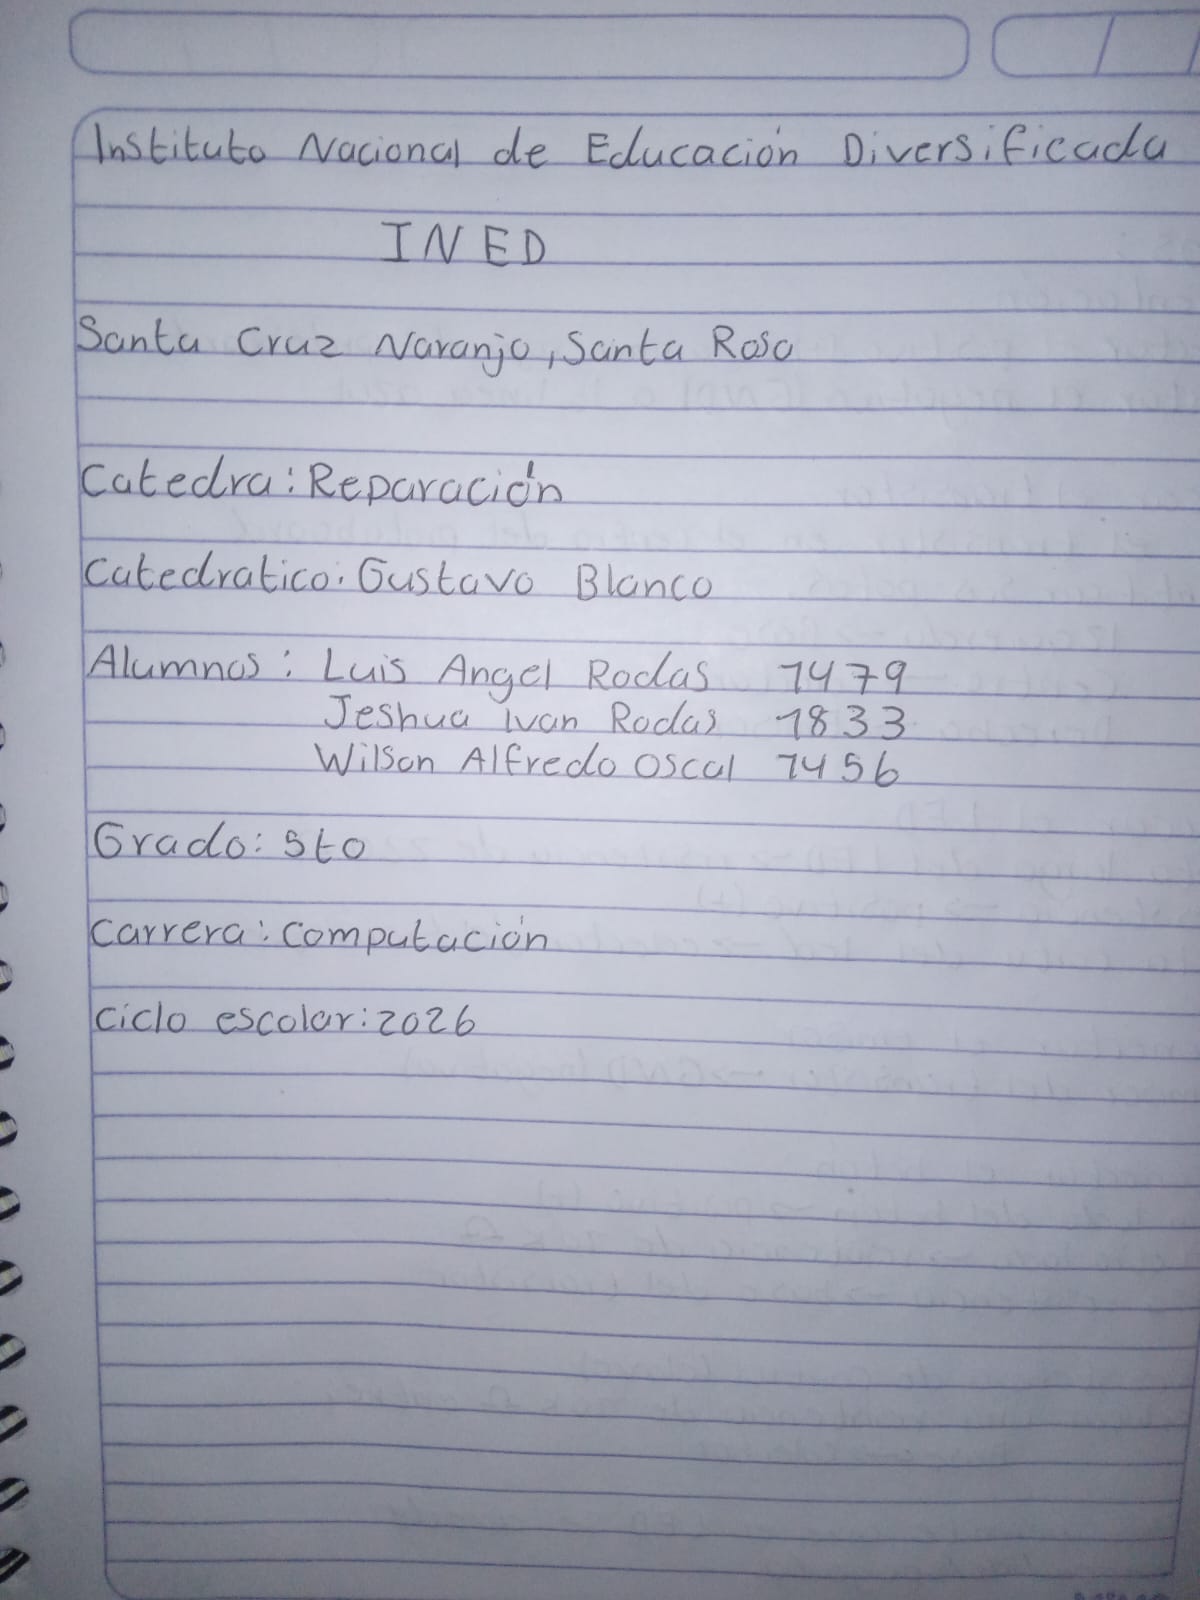 Instituto Nacional de Educación Diversificada
INED
Santa Cruz Naranjo, Santa Rosa
Catedra: Reparación
Catedratico: Gustavo Blanco
Alumnos: Luis Angel Rodas 1479
Jeshua Ivan Rodas 1833
Wilson Alfredo Oscal 1456
Grado: 5to
Carrera: Computación
Ciclo escolar: 2026